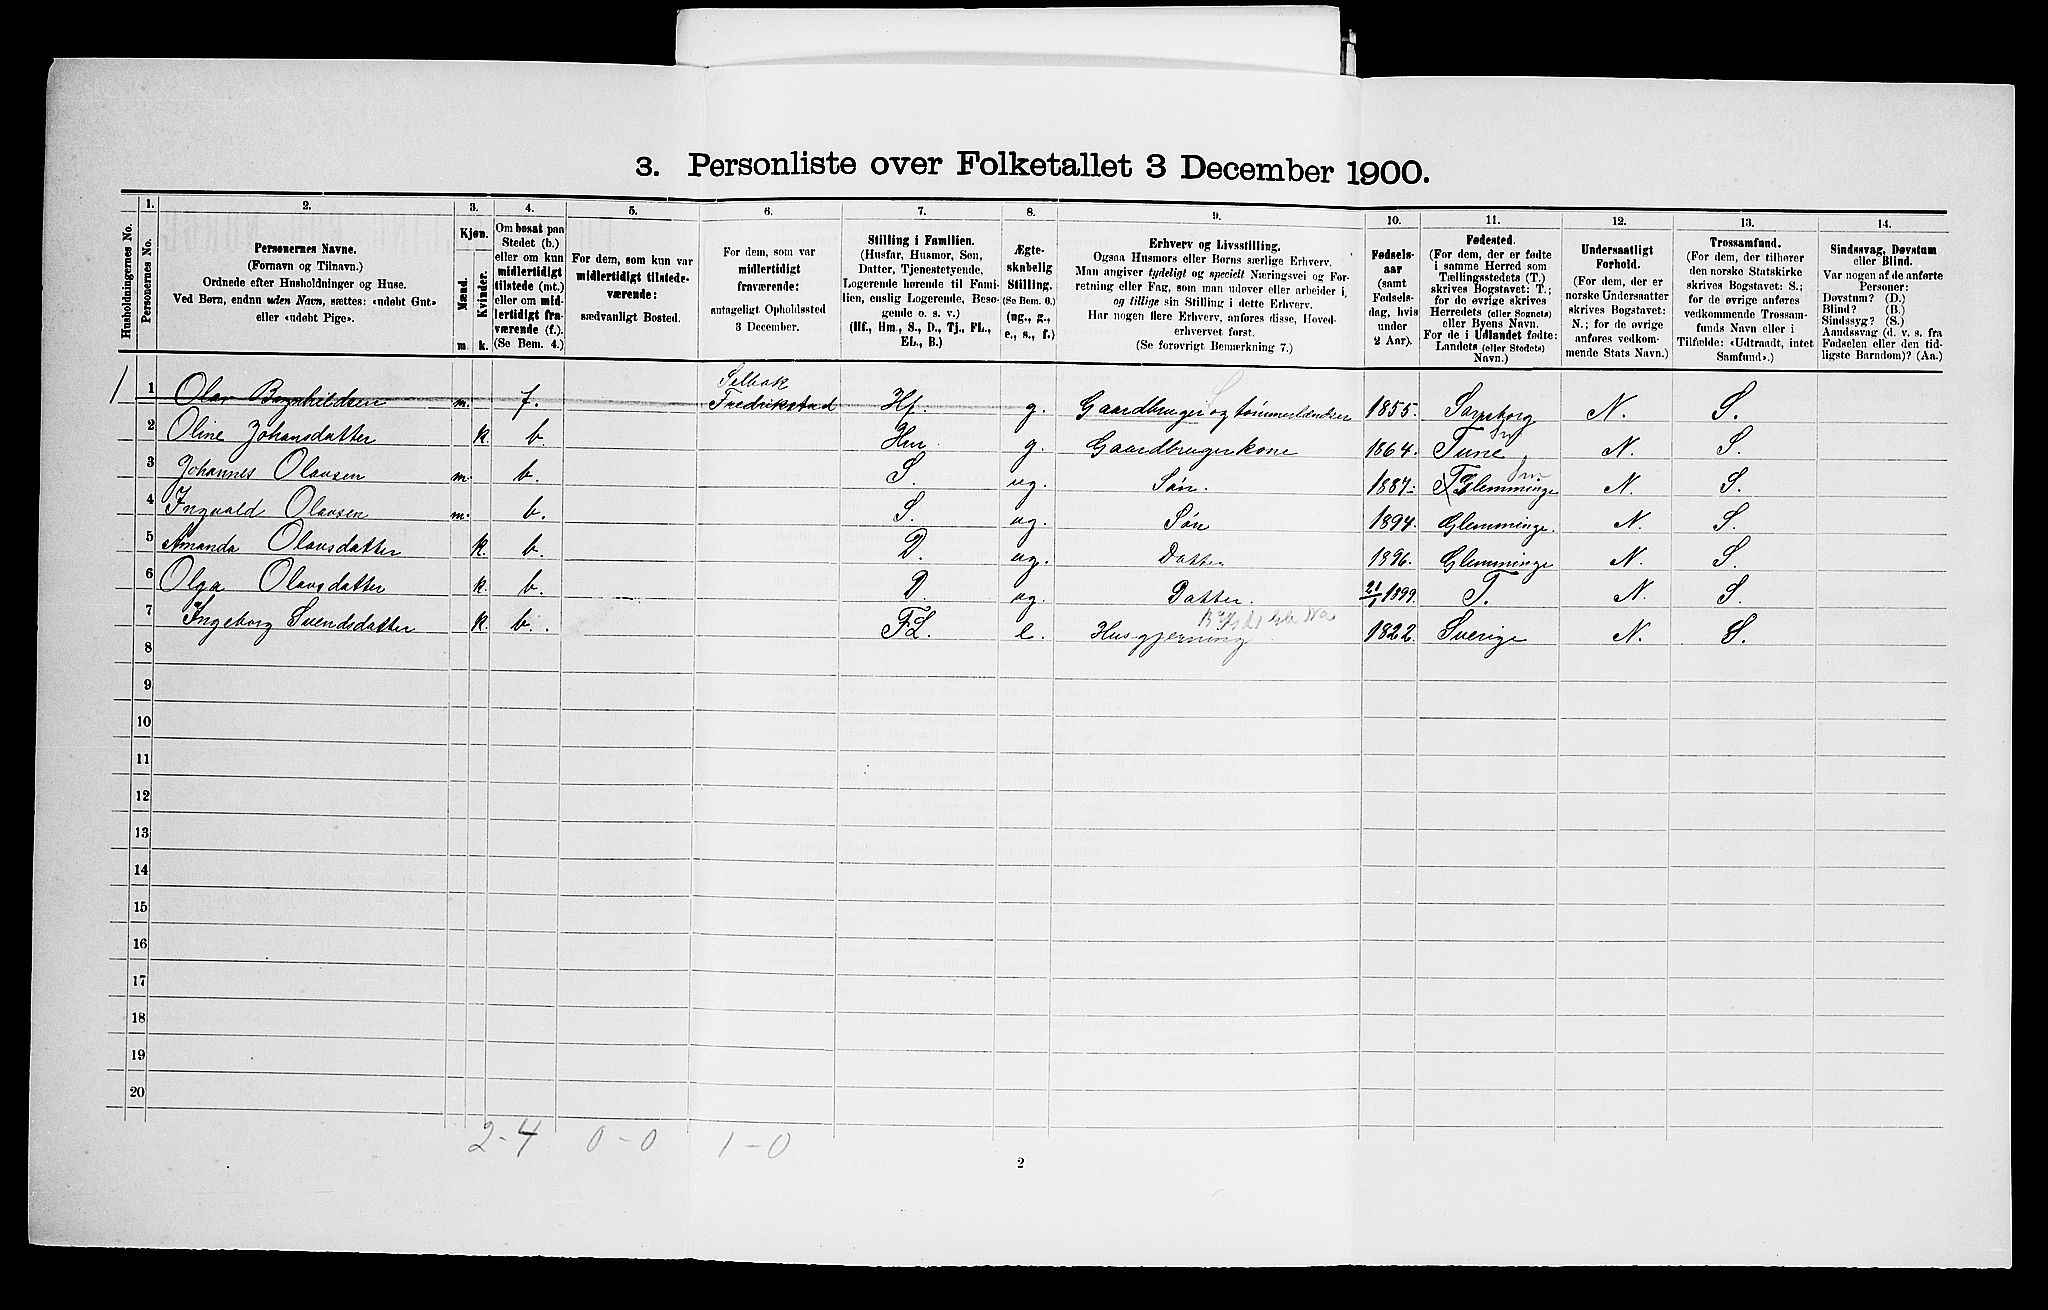 3. Personliste over Folketallet 3 December 1900.
Husholdningernes No.
1. Personernes No.
2. Personernes Navne.
(Fornavn og Tilnavn.)
Ordnede efter Husholdninger og Huse.
Ved Børn, endnu uden Navn, sættes: «udøbt Gut»
eller «udøbt Pige».
3. Kjøn.
Mænd. Kvinder.
m. k.
4. Om bosat paa
Stedet (b.)
eller om kun
midlertidigt
tilstede (mt.)
eller om mid-
lertidigt fra-
værende (f.).
(Se Bem. 4.)
5. For dem, som kun var
midlertidigt tilstede-
værende:
sædvanligt Bosted.
6. For dem, som var
midlertidigt
fraværende:
antageligt Opholdssted
3 December.
7. Stilling i Familien.
(Husfar, Husmor, Søn,
Datter, Tjenestetyende,
Logerende hørende til Fami-
lien, enslig Logerende, Besø-
gende o. s. v.)
(Hf., Hm., S., D., Tj., FL.,
EL., B.)
8. Ægte-
skabelig
Stilling.
(Se Bem. 6.)
(ug., g.,
e., s., f.)
9. Erhverv og Livsstilling.
Ogsaa Husmors eller Børns særlige Erhverv.
Man angiver tydeligt og specielt Næringsvei og For-
retning eller Fag, som man udøver eller arbeider i,
og tillige sin Stilling i dette Erhverv.
Har nogen flere Erhverv, anføres disse, Hoved-
erhvervet først.
(Se forøvrigt Bemærkning 7.)
10. Fødsels-
aar
(samt
Fødsels-
dag, hvis
under
2 Aar).
11. Fødested.
(For dem, der er fødte
i samme Herred som
Tællingsstedets (T.)
skrives Bogstavet: T.;
for de øvrige skrives
Herredets (eller Sognets)
eller Byens Navn.
For de i Udlandet fødte:
Landets (eller Stedets)
Navn.)
12. Undersaatligt
Forhold.
(For dem, der er
norske Undersaatter
skrives Bogstavet:
N.; for de øvrige
anføres vedkom-
mende Stats Navn.)
13. Trossamfund.
(For dem, der tilhører
den norske Statskirke
skrives Bogstavet: S.;
for de øvrige anføres
vedkommende Trossam-
funds Navn eller i
Tilfælde: «Udtraadt, intet
Samfund».)
14. Sindssvag, Døvstum
eller Blind.
Var nogen af de anførte
Personer:
Døvstum? (D.)
Blind? (B.)
Sindssyg? (S.)
Aandssvag (d. v. s. fra
Fødselen eller den tid-
ligste Barndom)? (Aa.)
Selbak
1 1 Olav Bognhildsen m. f. Fredrikstad Hf. g. Gaardbruger og tømmerlændser 1855. Sarpsborg N. S.
2 Oline Johansdatter k. b. Hm g. Gaardbrugerkone 1864. Tune N. S.
3 Johannes Olavsen m. b. S. ug. Søn. 1887. Glemminge N. S.
4 Ingvald Olavsen m. b. S. ug. Søn 1894. Glemminge. N. S.
5 Amanda Olavsdatter k. b. D. ug. Datter 1896. Glemminge N. S.
6 Olga Olavsdatter k. b. D. ug. Datter. 21/1 1899. T. N. S.
7 Ingeborg Svendsdatter k. b. FL. e. Husgjerning 1822. Sverige N. S.
8
9
10
11
12
13
14
15
16
17
18
19
20
2-4 0-0 1-0
2